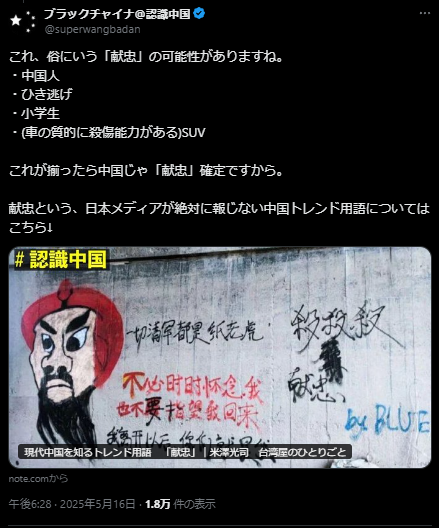 ブラックチャイナ@認識中国
@superwangbadan
これ、俗にいう「献忠」の可能性がありますね。
・中国人
・ひき逃げ
・小学生
・(車の質的に殺傷能力がある)SUV
これが揃ったら中国じゃ「献忠」確定ですから。
献忠という、日本メディアが絶対に報じない中国トレンド用語については
こちら↓
# 認識中国
一切清军都是纸老虎
不必时时怀念我
也不要指望我回来
殺殺殺
献忠
by BLUE
現代中国を知るトレンド用語 「献忠」｜米澤光司 台湾屋のひとりごと
note.comから
午後6:28 · 2025年5月16日 · 1.8万 件の表示